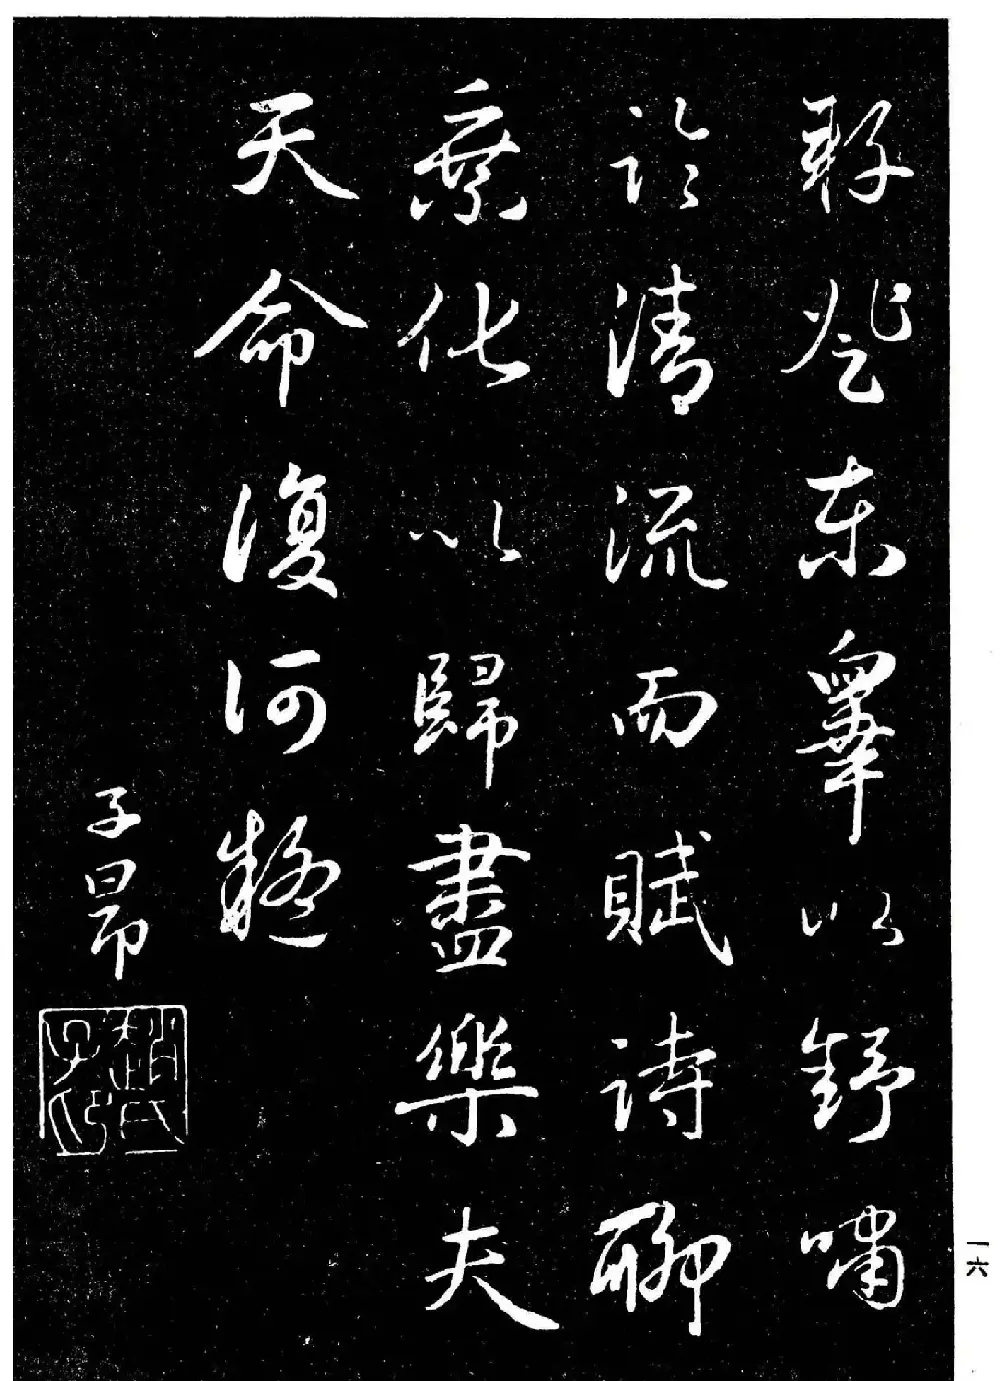 耔登東皐以舒嘯
臨清流而賦詩聊
乘化以歸盡樂夫
天命復何疑
子昂
趙氏子昂
一六